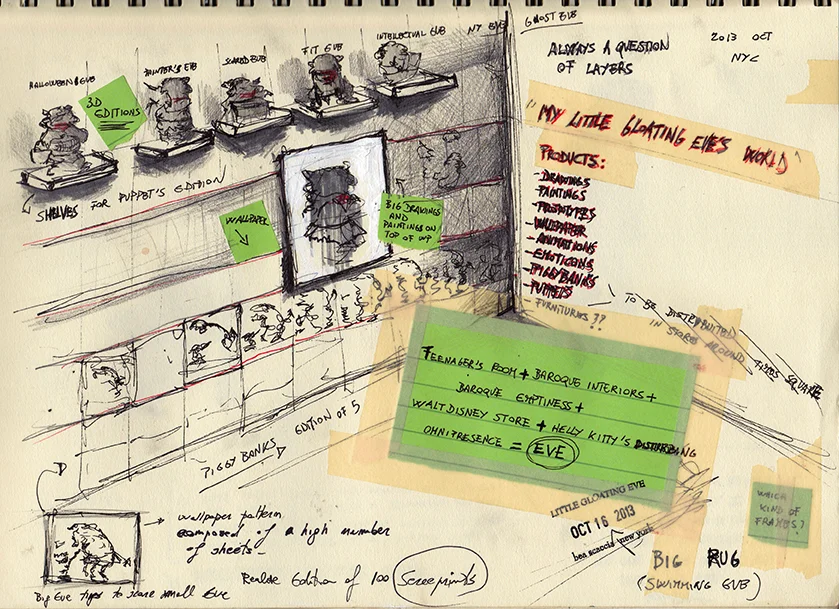 GHOST EVE
ALWAYS A QUESTION
OF LAYERS
2013 OCT
NYC
HALLOWEEN EVE
PAINTER'S EVE
SCARED EVE
FIT EVE
INTELLECTUAL EVE
NY EVE
3D
EDITIONS
SHELVES FOR PUPPET'S EDITION
WALLPAPER
BIG DRAWINGS
AND
PAINTINGS ON
TOP OF WP
"MY LITTLE GLOATING EVE'S WORLD"
PRODUCTS:
- DRAWINGS
- PAINTINGS
- PROTOTYPES
- WALLPAPER
- ANIMATIONS
- EMOTICONS
- PIGGY BANKS
- PUPPETS
- FURNITURES ??
TO BE DISTRIBUTED
IN STORES AROUND
TIMES SQUARE
TEENAGER'S ROOM + BAROQUE INTERIORS +
BAROQUE EMPTINESS +
WALT DISNEY STORE + HELLY KITTY'S DISTURBING
OMNIPRESENCE = EVE
PIGGY BANKS EDITION OF 5
LITTLE GLOATING EVE
OCT 16 2013
bea scaccia new york
WHICH
KIND OF
FRAMES?
BIG RUG
(SWIMMING EVE)
wallpaper pattern
composed of a high number
of sheets
Realize Edition of 100 Screenprints
Big Eve tries to scare small Eve